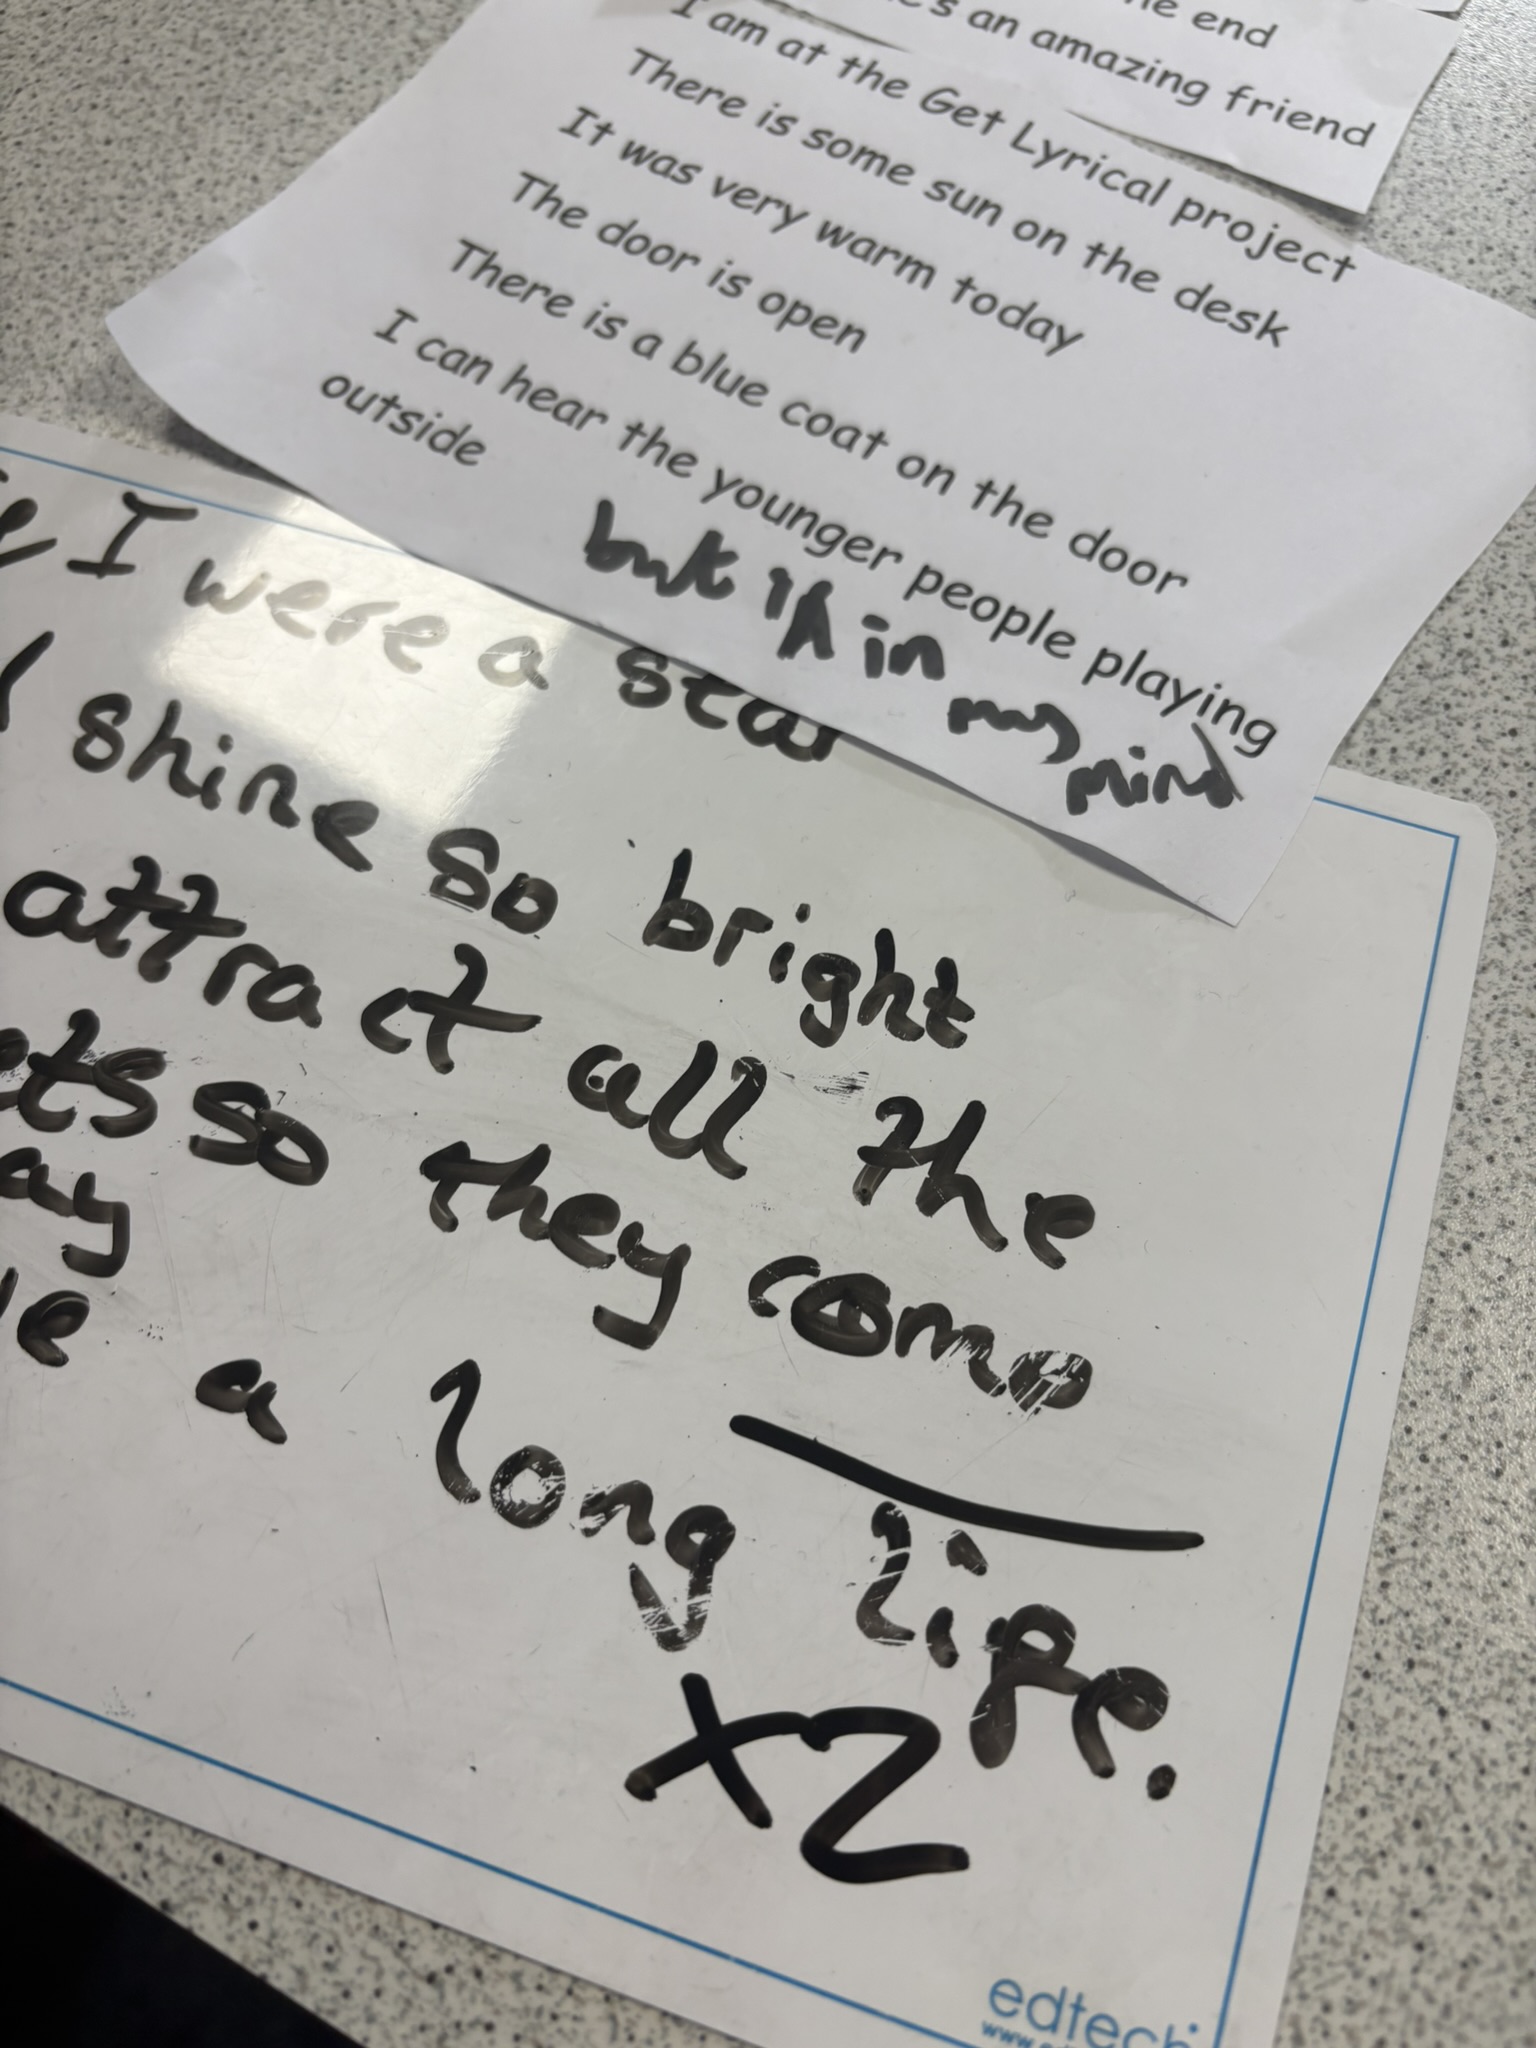 he end
's an amazing friend
I am at the Get Lyrical project
There is some sun on the desk
It was very warm today
The door is open
There is a blue coat on the door
I can hear the younger people playing
outside
but in my mind
I were a star
shine so bright
attract all the
ets so they come
ay
a long life.
X2
edtech
www.